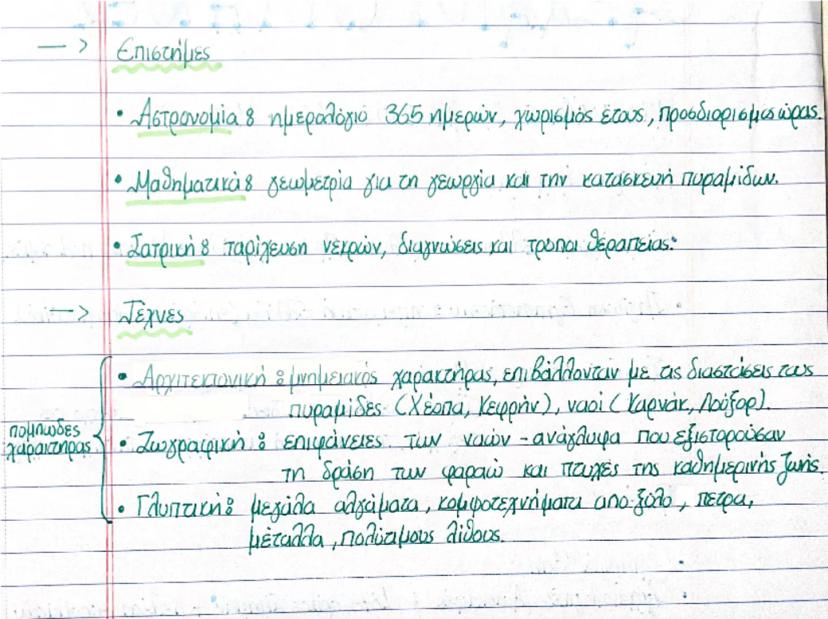 —> Επιστήμες
• Αστρονομία : ημερολόγιο 365 ημερών, χωρισμός έτους, προσδιορισμος ώρας.
• Μαθηματικά : γεωμετρία για τη γεωργία και την κατασκευή πυραμίδων.
• Ιατρική : ταρίχευση νεκρών, διαγνώσεις και τροποι θεραπείας.
—> Τέχνες
• Αρχιτεκτονική : μνημειακός χαρακτήρας, επιβάλλονταν με τις διαστάσεις τους
πυραμίδες (Χέοπα, Κεφρήν), ναοί (Καρνάκ, Λούξορ).
πομπώδες χαρακτηρας
• Ζωγραφική : επιφάνειες των ναών - ανάγλυφα που εξιστορούσαν
τη δράση των φαραώ και πτυχές της καθημερινής ζωής.
• Γλυπτική : μεγάλα αλγάματα, κομψοτεχνήματα απο ξύλο, πέτρα,
μέταλλα, πολύτιμους λίθους.